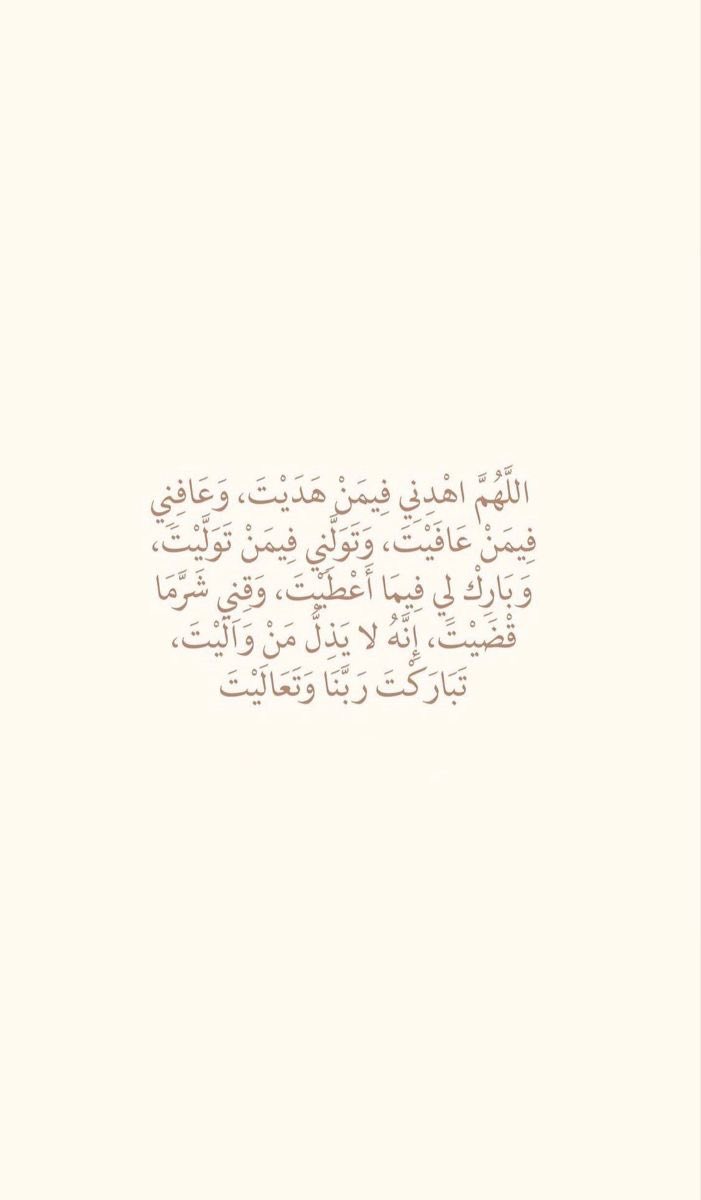 اللَّهُمَّ اهْدِنِي فِيمَنْ هَدَيْتَ، وَعَافِنِي
فِيمَنْ عَافَيْتَ، وَتَوَلَّنِي فِيمَنْ تَوَلَّيْتَ،
وَبَارِكْ لِي فِيمَا أَعْطَيْتَ، وَقِنِي شَرَّمَا
قْضَيْتَ، إِنَّهُ لا يَذِلُّ مَنْ وَآلَيْتَ،
تَبَارَكْتَ رَبَّنَا وَتَعَالَيْتَ